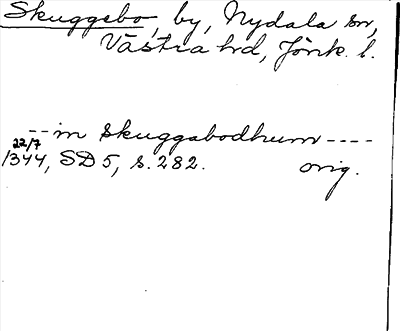 Skuggebo, by, Nydala sn,
Västra hd, Jönk. l.
-- in Skuggabodhum ----
22/7
1344, SD 5, s. 282. orig.